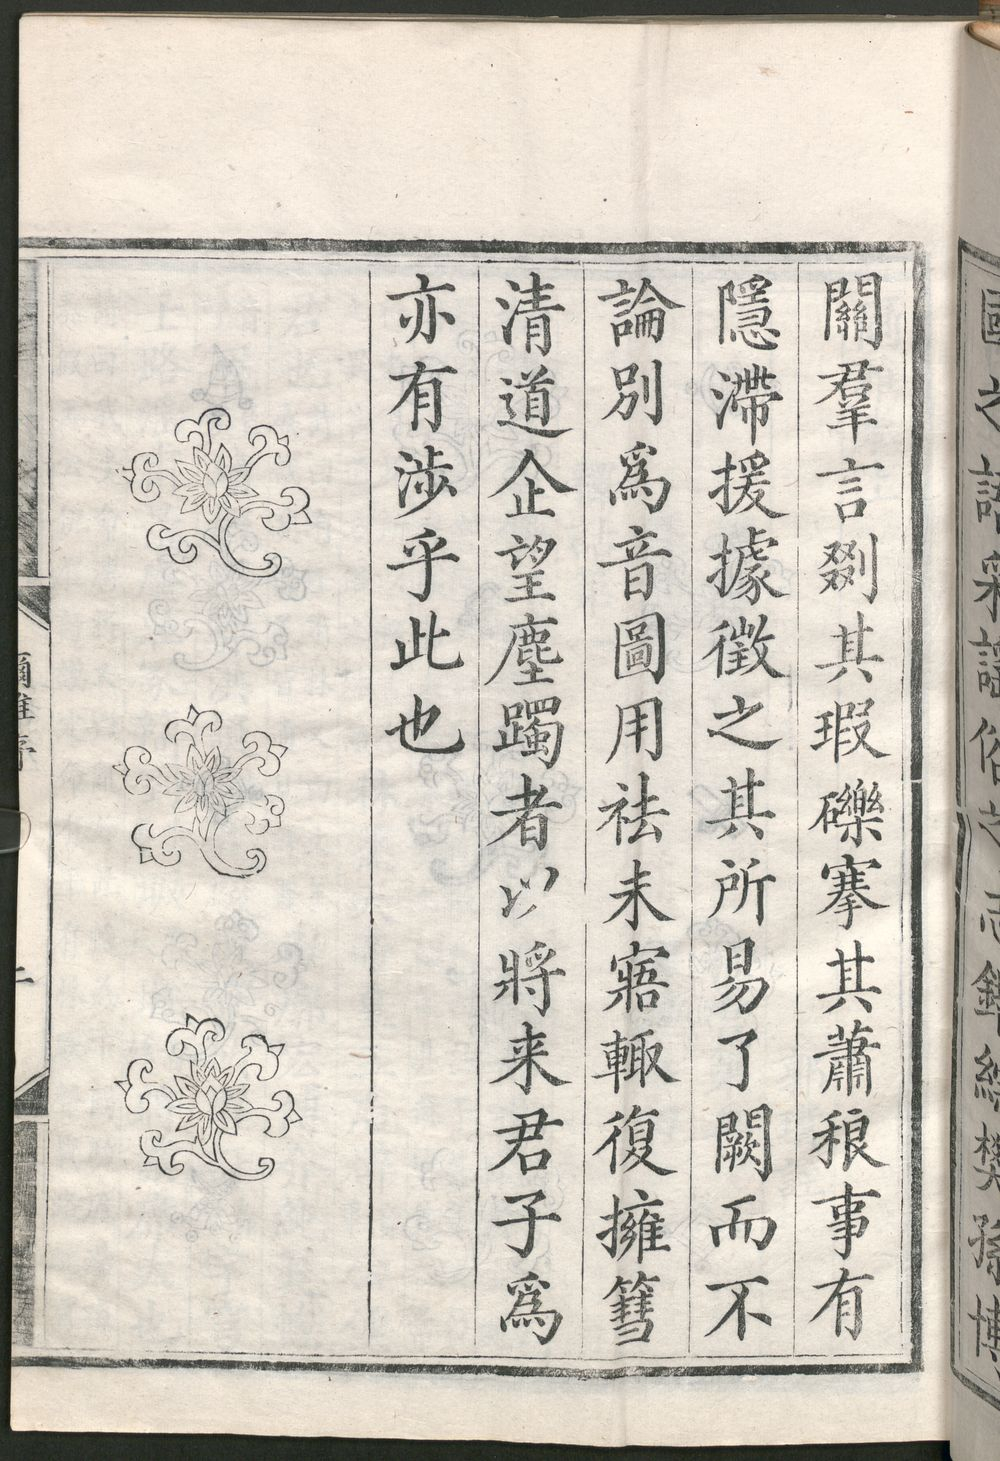 國之語采謠俗之志錯綜樊孫博
關羣言剟其瑕礫搴其蕭稂事有
隱滯援據徵之其所易了闕而不
論別爲音圖用祛未寤輙復擁篲
清道企望塵躅者以將来君子爲
亦有涉乎此也
爾雅序
二